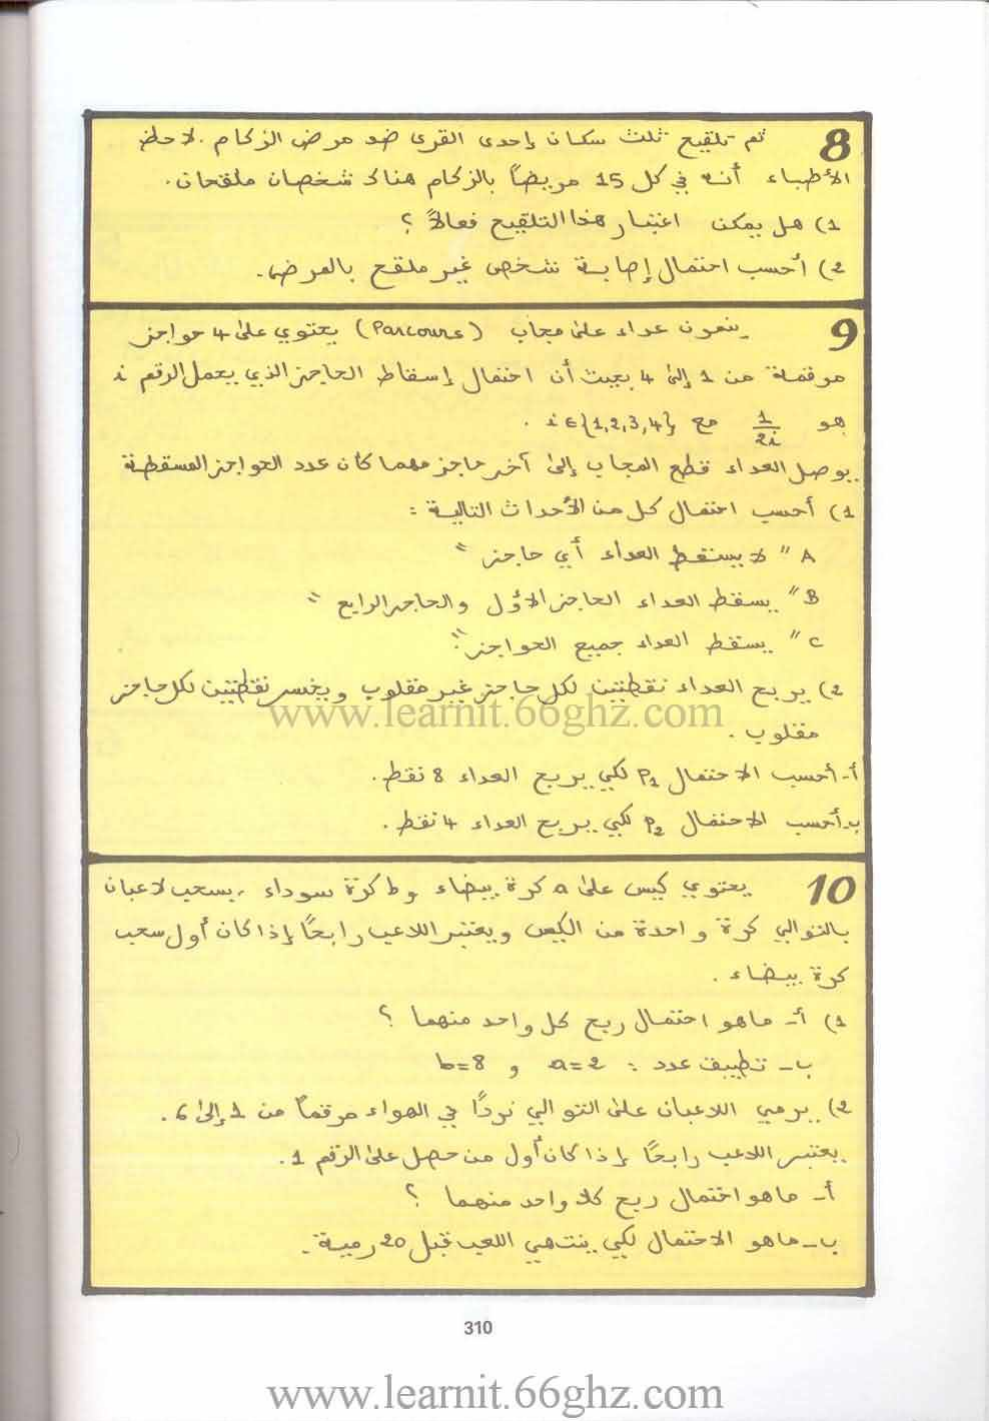 8 تم تلقيح ثلث سكان إحدى القرى ضد مرض الزكام. لاحظ
الأطباء أنه في كل 15 مريضاً بالزكام هناك شخصان ملقحان.
1) هل يمكن اعتبار هذا التلقيح فعالاً ؟
2) أحسب احتمال إصابة شخص غير ملقح بالمرض.
9 يتمرن عداء على مجاب (Parcours) يحتوي على 4 حواجز
مرقمة من 1 إلى 4 بحيث أن احتمال إسقاط الحاجز الذي يحمل الرقم i
هو 1/2i مع i∈{1,2,3,4} .
يوصل العداء قطع المجاب إلى آخر حاجز مهما كان عدد الحواجز المسقطة
1) أحسب احتمال كل من الأحداث التالية :
A " لا يسقط العداء أي حاجز "
B " يسقط العداء الحاجز الأول والحاجز الرابع "
C " يسقط العداء جميع الحواجز ".
2) يربح العداء نقطتين لكل حاجز غير مقلوب ويخسر نقطتين لكل حاجز
www.learnit.66ghz.com
مقلوب .
أ- أحسب الاحتمال P1 لكي يربح العداء 8 نقط.
ب- أحسب الاحتمال P2 لكي يربح العداء 4 نقط .
10 يحتوي كيس على a كرة بيضاء و b كرة سوداء . يسحب لاعبان
بالتوالي كرة واحدة من الكيس ويعتبر اللاعب رابحاً إذا كان أول سحب
كرة بيضاء .
1) أ- ما هو احتمال ربح كل واحد منهما ؟
ب- تطبيق عدد : a=2 و b=8
2) يرمي اللاعبان على التوالي نردًا في الهواء مرقماً من 1 إلى 6.
يعتبر اللاعب رابحًا إذا كان أول من حصل على الرقم 1.
أ- ما هو احتمال ربح كلا واحد منهما ؟
ب- ما هو الاحتمال لكي ينتهي اللعب قبل 20 رمية.
310
www.learnit.66ghz.com